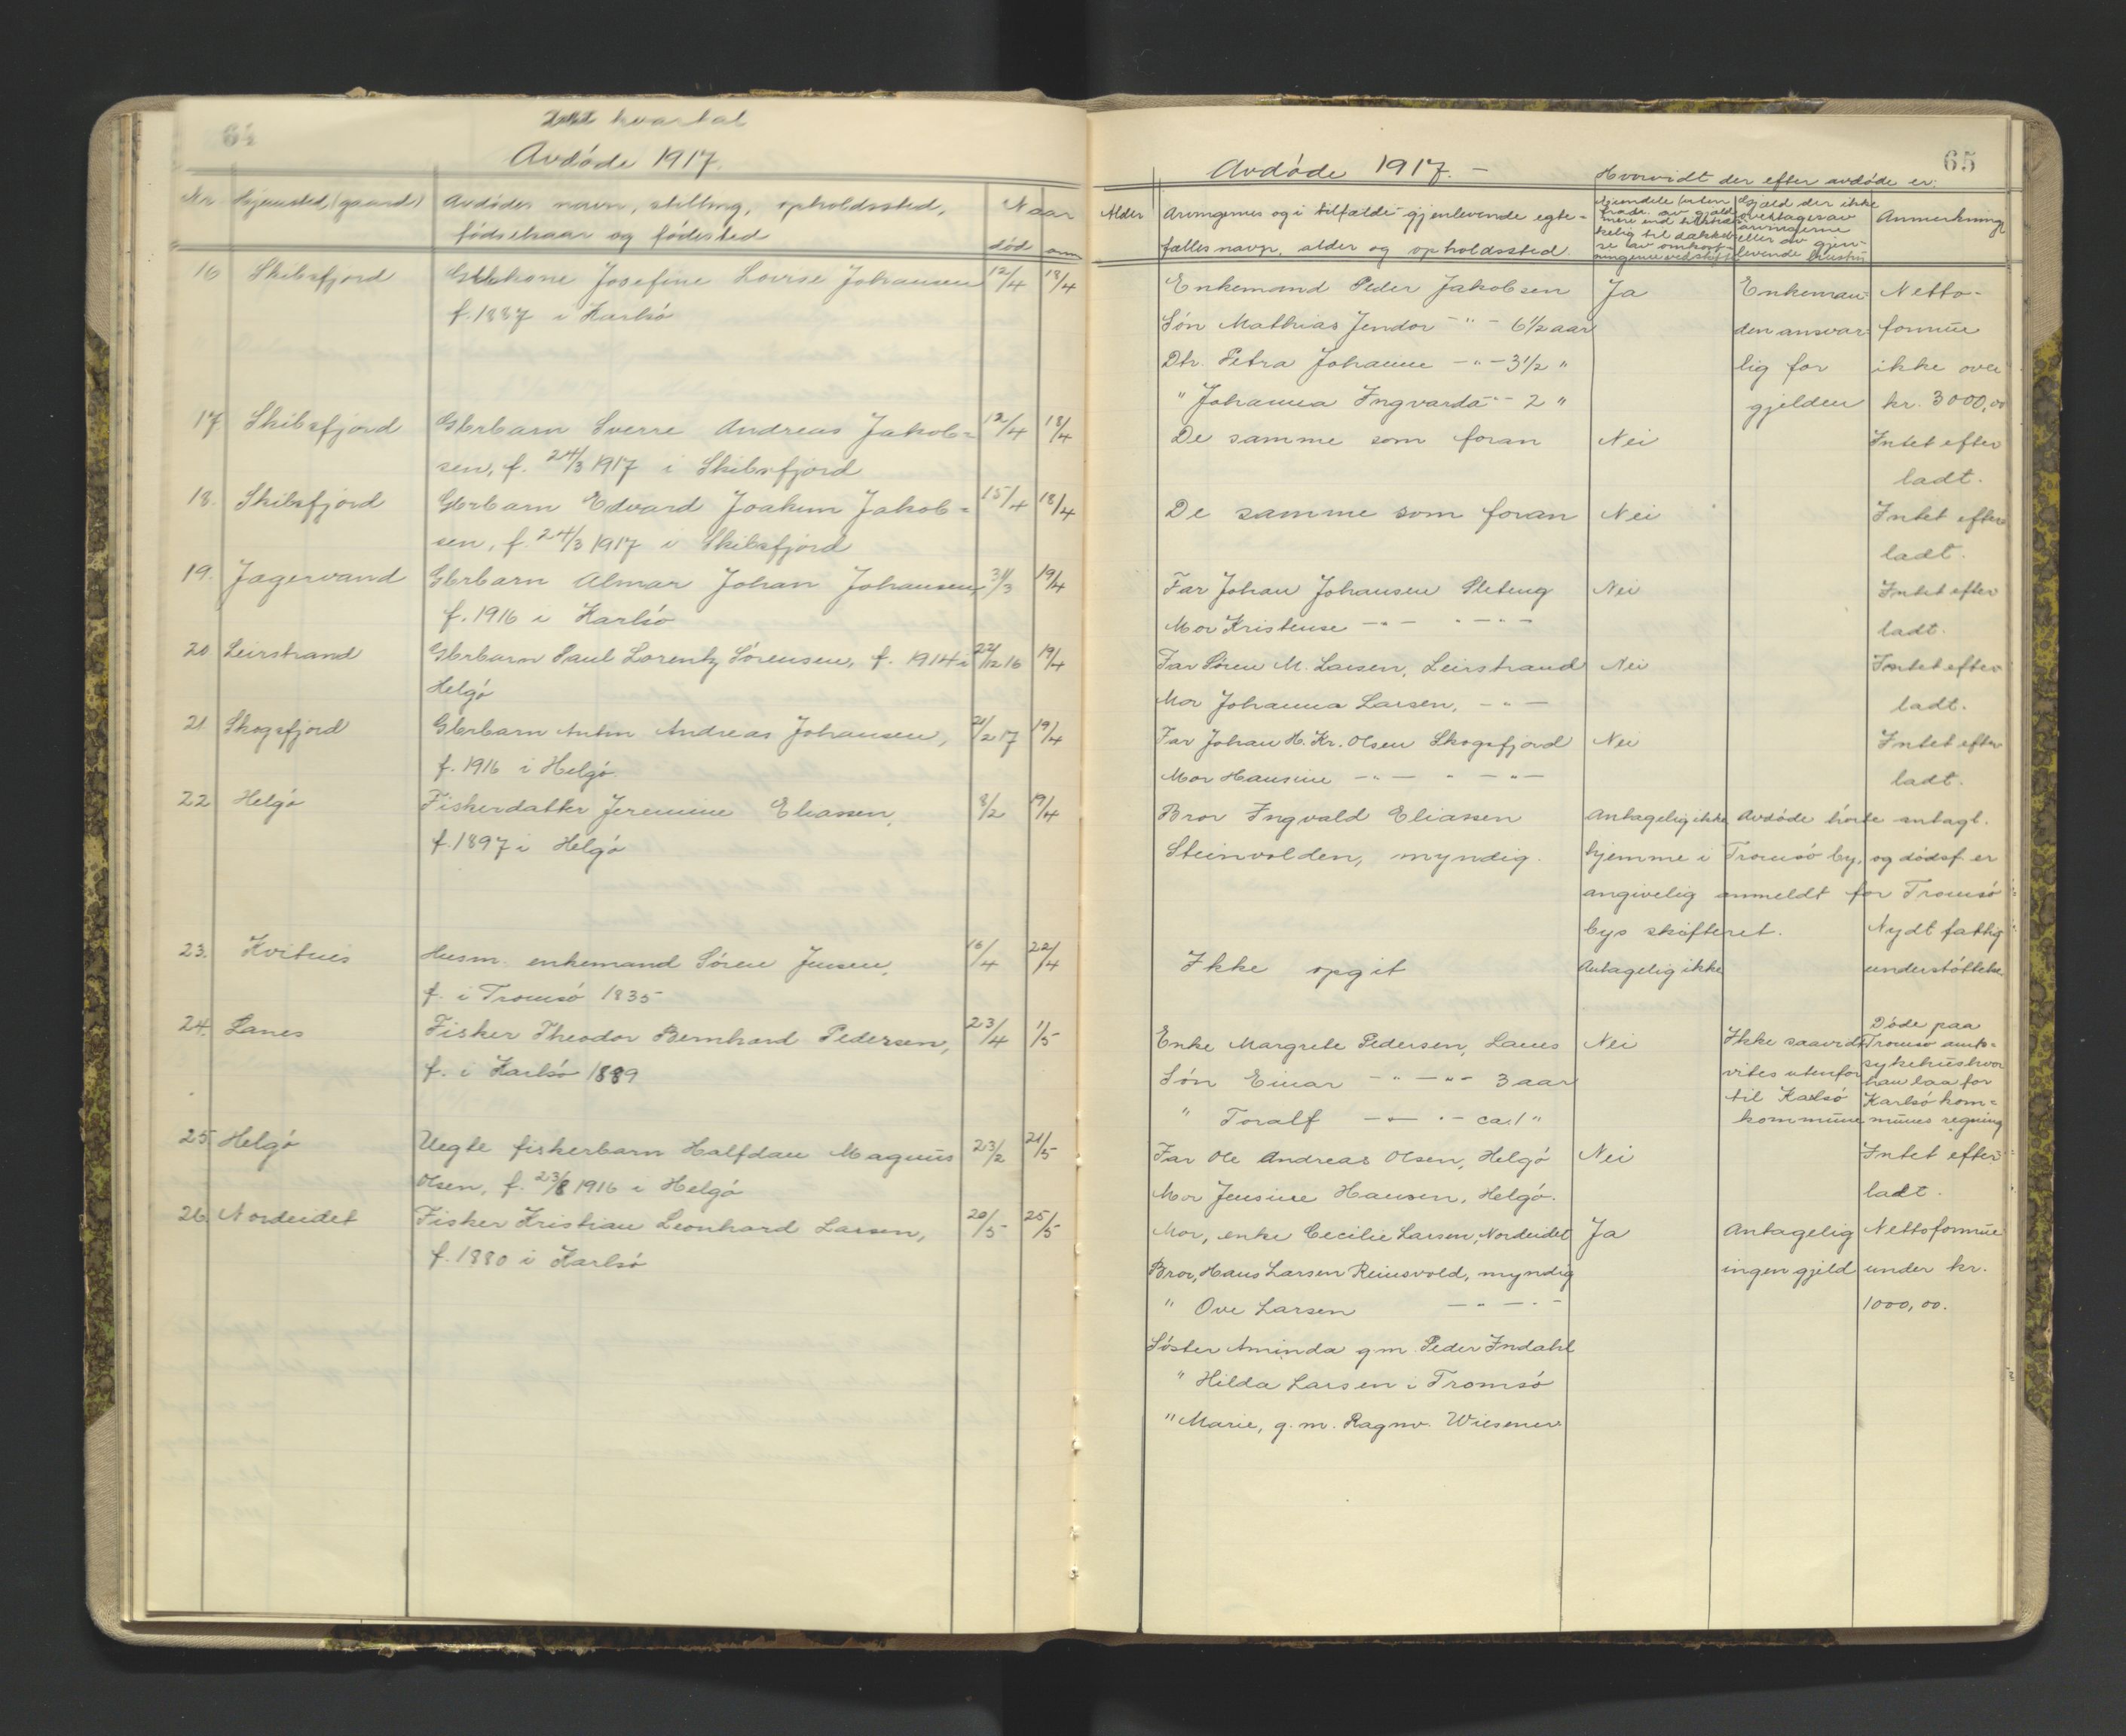 64
kvartal
Avdøde 1917.
Nr Hjemsted (gaard) Avdødes navn, stilling, opholdssted, Naar
fødselsaar og fødested død anm
16 Skibsfjord Gbrkone Josefine Lovise Johansen 12/4 18/4
f. 1887 i Karlsø
17. Skibsfjord Gbrbarn Sverre Andreas Jakob= 12/4 18/4
sen, f. 24/3 1917 i Skibsfjord
18. Skibsfjord Gbrbarn Edvard Joakim Jakob= 15/4 18/4
sen, f. 24/3 1917 i Skibsfjord
19. Jægervand Gbrbarn Almar Johan Johansen, 31/3 19/4
f. 1916 i Karlsø
20 Leirstrand Gbrbarn Paul Lorentz Sørensen, f. 1914 i 22/12 16 19/4
Helgø
21 Skogsfjord Gbrbarn Anton Andreas Johansen, 21/2 17 19/4
f. 1916 i Helgø
22 Helgø Fiskerdatter Jeremine Eliassen, 8/2 19/4
f. 1897 i Helgø
23. Kvitnes Husm. enkemand Søren Jensen, 16/4 22/4
f. i Tromsø 1835
24. Lanes Fisker Theodor Bernhard Pedersen, 23/4 1/5
f. i Karlsø 1889
25. Helgø Uegte fiskerbarn Halfdan Magnus 23/2 21/5
Olsen, f. 23/8 1916 i Helgø
26. Nordeidet Fisker Kristian Leonhard Larsen, 20/5 25/5
f. 1880 i Karlsø
65
Avdøde 1917. — Hvorvidt der efter avdøde er:
Alder Arvingernes og i tilfælde gjenlevende egte- Eiendele (uten Gjæld der ikke Anmerkning
fradr. av gjæld overtages av
mere end tilstræk- arvingerne
fælles navn, alder og opholdssted. kelig til dække- eller av gjen-
se av omkost- levende hustru
ningerne ved skifte
Enkemand Peder Jakobsen Ja Enkeman- Netto-
Søn Mathias Jendor -"- 6½ aar den ansvar- formue
Dtr. Petra Johanne -"- 3½ " lig for ikke over
" Johanna Ingvarda -"- 2 " gjelden kr. 3000,00
De samme som foran Nei Intet efter
ladt.
De samme som foran Nei Intet efter
ladt.
Far Johan Johansen Nei Intet efter
Mor Kristense -"- -"- ladt.
Far Søren M. Larsen, Leirstrand Nei Intet efter
Mor Johanna Larsen, -"- ladt.
Far Johan H. Kr. Olsen Skogsfjord Nei Intet efter
Mor Hansine -"- " -"- ladt.
Bror Ingvald Eliassen Antagelig ikke Avdøde hørte antagl.
Steinvolden, myndig. hjemme i Tromsø by, og dødsf. er
angivelig anmeldt for Tromsø
bys skifteret. Nydt fattig
Ikke opgit Antagelig ikke understøttelse
Døde paa
Enke Margrete Pedersen, Lanes Nei Ikke saavidt Tromsø amts-
Søn Einar -"- -"- 3 aar vites utenfor sykehus hvor
han laa for
" Toralf -"- "- ca. 1 " til Karlsø Karlsø kom=
kommune munes regning
Far Ole Andreas Olsen, Helgø Nei Intet efter
Mor Jensine Hansen, Helgø. ladt.
Mor, enke Cecilie Larsen, Nordeidet Ja Antagelig Nettoformue
Bror, Hans Larsen Reinsvold, myndig ingen gjeld under kr.
" Ove Larsen -"- -"- 1000,00.
Søster Aminda g.m. Peder Indahl
" Hilda Larsen i Tromsø
" Marie, g.m. Ragnv. Wilsener